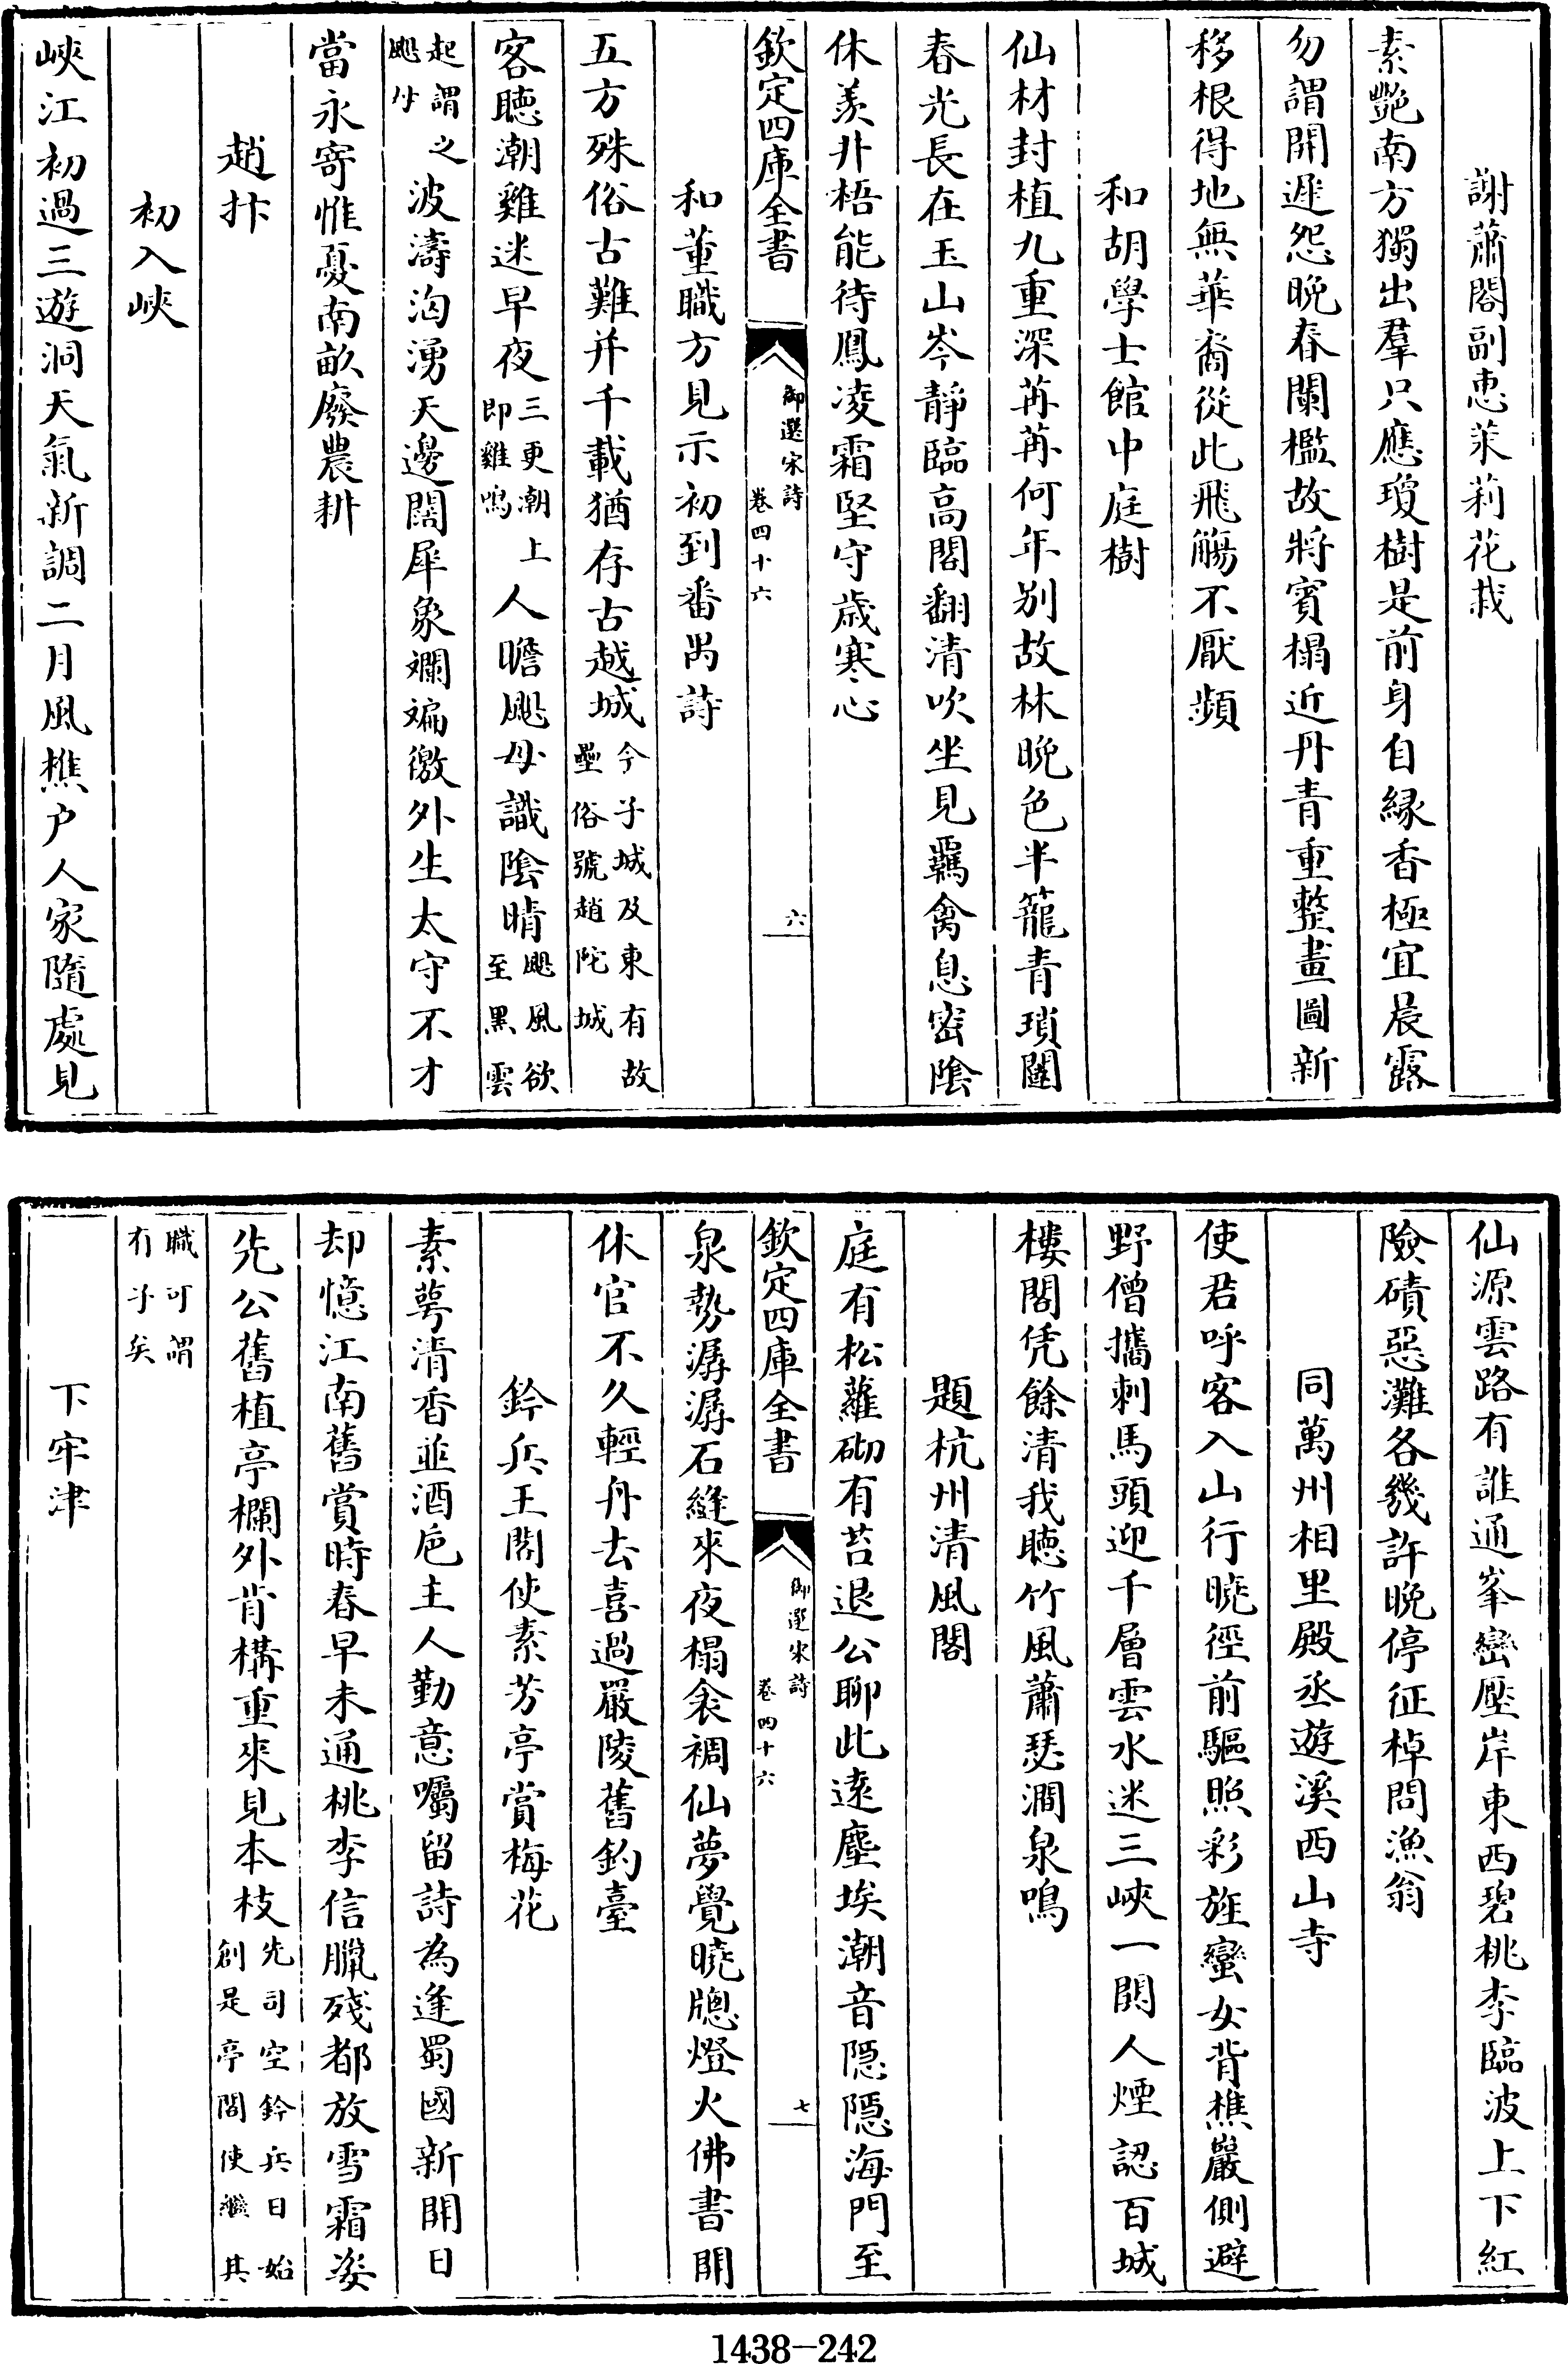 謝蕭閣副惠茉莉花栽
素艷南方獨出羣只應瓊樹是前身自緣香極宜晨露
勿謂開遲怨晚春闌檻故將賓榻近丹青重整畫圖新
移根得地無華裔從此飛觴不厭頻
和胡學士館中庭樹
仙材封植九重深苒苒何年别故林晚色半籠青瑣闥
春光長在玉山岑靜臨高閣翻清吹坐見羇禽息宻陰
休羨井梧能待鳳凌霜堅守歳寒心
欽定四庫全書
御選宋詩
卷四十六
六
和董職方見示初到番禺詩
五方殊俗古難并千載猶存古越城今子城及東有故
壘俗號趙陀城
客聽潮雞迷早夜三更潮上
即雞鳴人瞻颶母識陰晴颶風欲
至黑雲
起謂之
颶母波濤洶湧天邊闊犀象斕斒徼外生太守不才
當永寄惟憂南畝廢農耕
趙抃
初入峽
峽江初過三遊洞天氣新調二月風樵户人家隨處見
仙源雲路有誰通峯巒壓岸東西碧桃李臨波上下紅
險磧惡灘各幾許晚停征棹問漁翁
同萬州相里殿丞遊溪西山寺
使君呼客入山行曉徑前驅照彩旌蠻女背樵巖側避
野僧攜刺馬頭迎千層雲水迷三峽一閧人煙認百城
樓閣凭餘清我聽竹風蕭瑟澗泉鳴
題杭州清風閣
庭有松蘿砌有苔退公聊此遠塵埃潮音隠隠海門至
欽定四庫全書
御選宋詩
卷四十六
七
泉勢潺潺石縫來夜榻衾裯仙夢覺曉牕燈火佛書開
休官不久輕舟去喜過嚴陵舊釣臺
鈐兵王閤使素芳亭賞梅花
素萼清香並酒巵主人勤意囑留詩為逢蜀國新開日
却憶江南舊賞時春早未通桃李信臘殘都放雪霜姿
先公舊植亭欄外肯構重來見本枝先司空鈐兵日始
創是亭閤使繼其
職可謂
有子矣
下牢津
1438-242